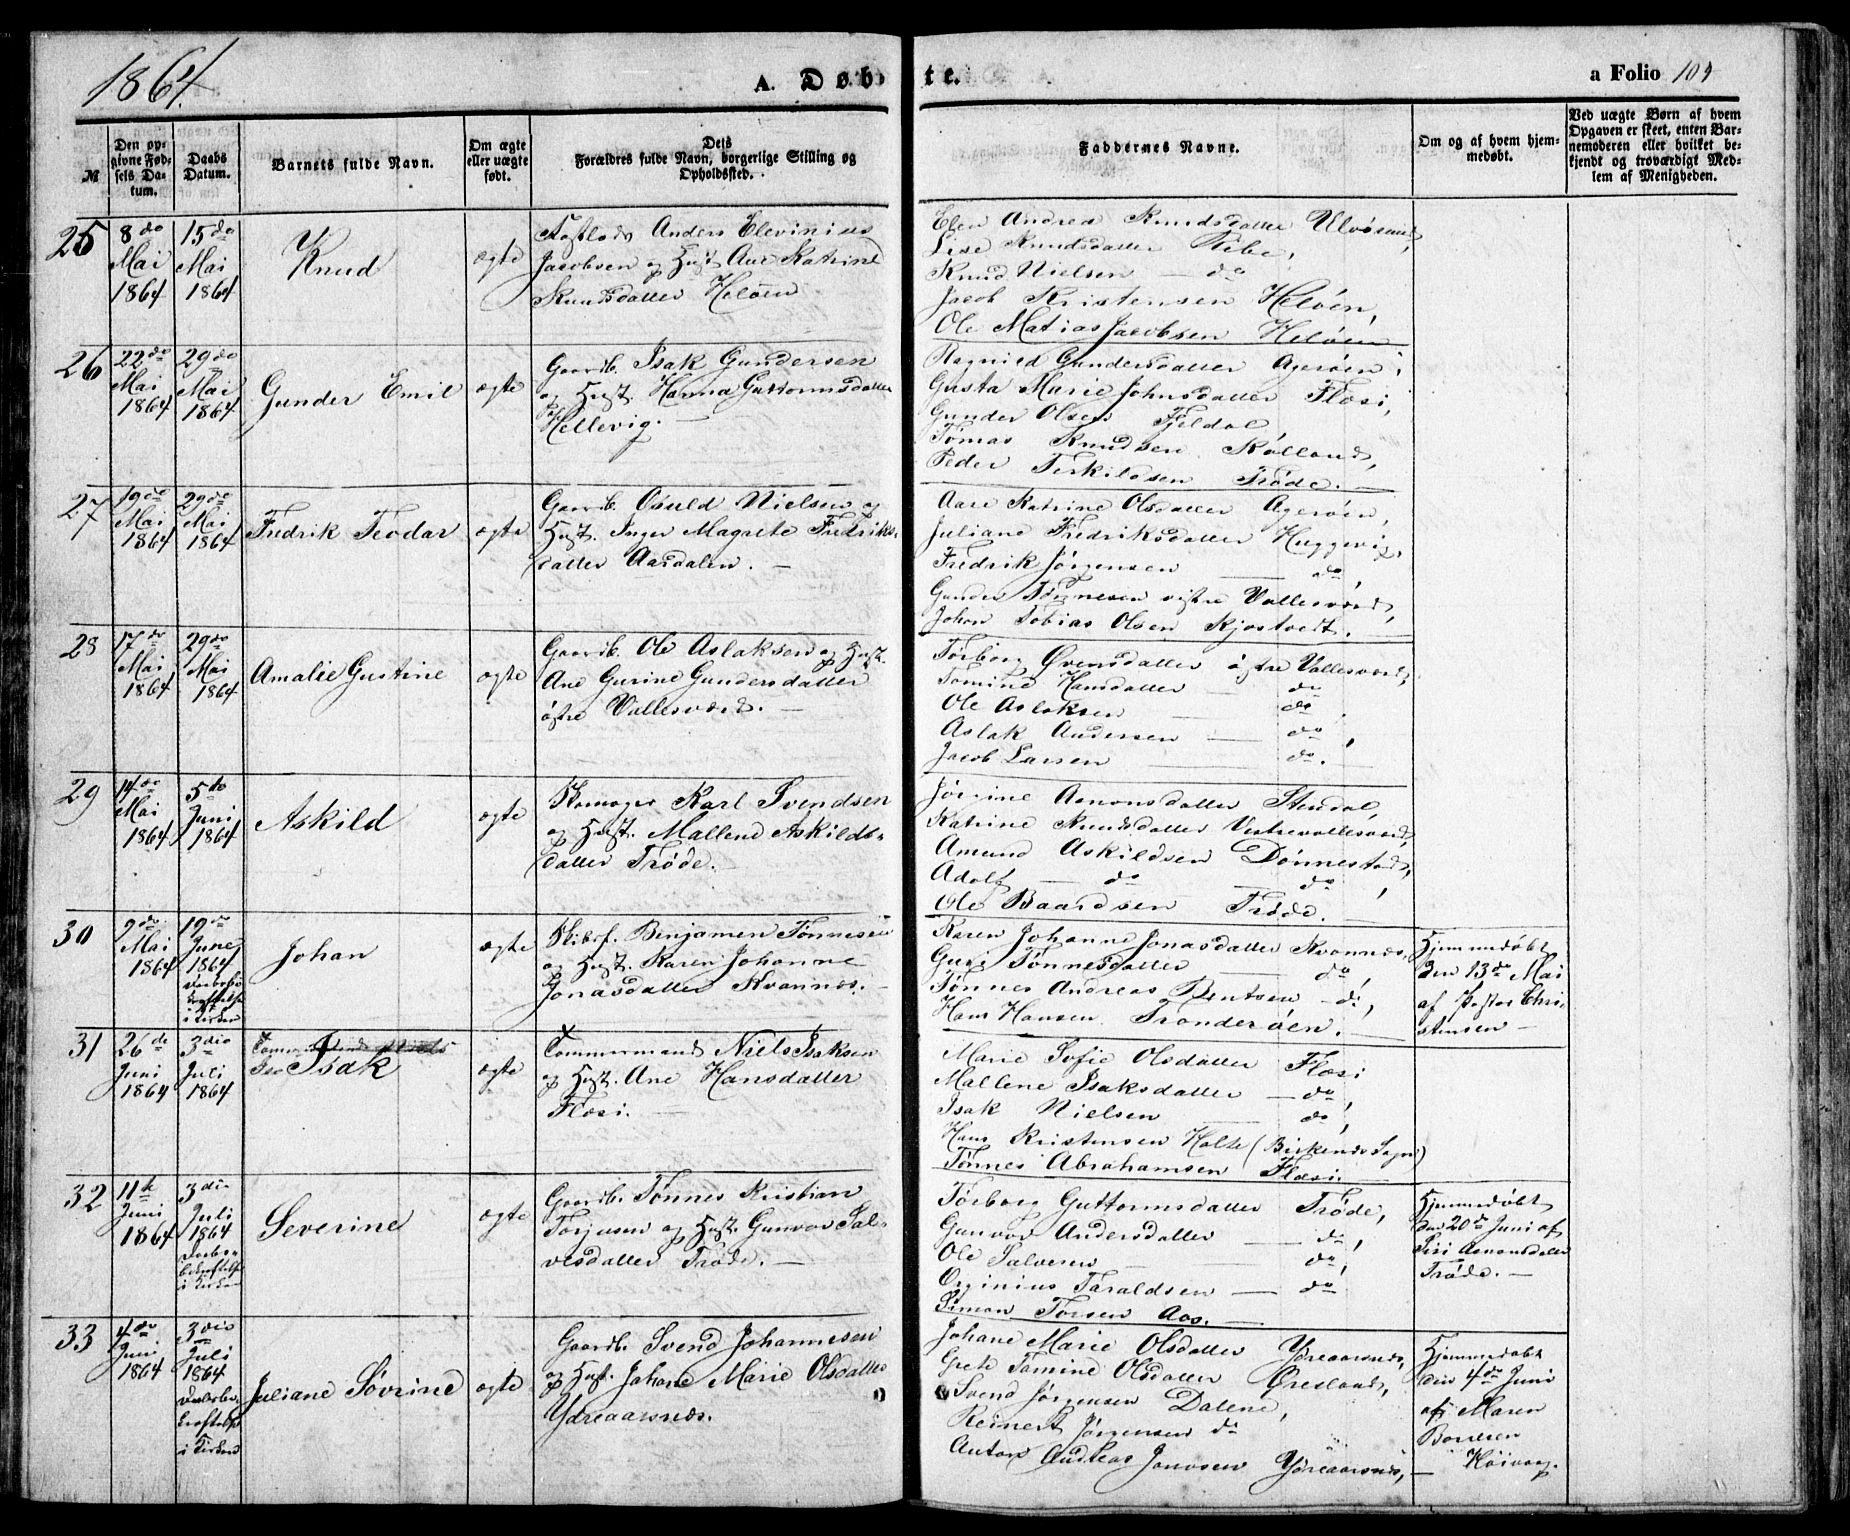 1864.
A. Døbte.
a Folio 104
№
Den opgivne Fødsels Datum.
Daabs Datum.
Barnets fulde Navn.
Om ægte eller uægte født.
Dets Forældres fulde Navn, borgerlige Stilling og Opholdssted.
Faddernes Navne.
Om og af hvem hjemmedøbt.
Ved uægte Børn af hvem Opgaven er skeet, enten Barnemoderen eller hvilket bekjendt og troværdigt Medlem af Menigheden.
25
8de Mai 1864
15de Mai 1864
Knud
ægte
Anders Elevinius
Jacobsen og Hust. Ane Katrine
Knudsdatter Heløen
Elen Andrea Knudsdatter Ulvøsund,
Lise Knudsdatter Pebe,
Knud Nielsen — do
Jacob Kristensen Heløen,
Ole Matias Jacobsen Heløen
26
22de Mai 1864
29de Mai 1864
Gunder Emil
ægte
Gaardb. Isak Gundersen
og Hust. Hanna Guttormsdatter
Hellevig. —
Ragnild Gundersdatter Agerøen,
Gusta Marie Johnsdatter Fløsi,
Gunder Olsen Fjeldal
Tomas Knudsen Kølland,
Peder Terkildsen Trøde. —
27
19de Mai 1864
29de Mai 1864
Fredrik Teodar
ægte
Gaardb. Osuld Nielsen og
Hust. Inger Magrete Fredriks-
datter Aasdalen. —
Aase Katrine Olsdatter Agerøen,
Juliane Fredriksdatter Huggevig,
Fredrik Jørgensen — do,
Gunder Tønnesen vestre Vallesværd,
Johan Tobias Olsen Kjøstvedt. —
28
17de Mai 1864
29de Mai 1864
Amalie Gustine
ægte
Gaardb. Ole Aslaksen og Hust.
Ane Gurine Gundersdatter
østre Vallesværd. —
Torborg Øvensdatter østre Vallesværd,
Tomine Hansdatter — do
Ole Aslaksen — do,
Aslak Andersen — do,
Jacob Larsen — do.
29
14de Mai 1864
5te Juni 1864
Askild
ægte
Skomager Karl Svendsen
og Hust. Mallene Askilds-
datter Trøde. —
Jørgine Aanonsdatter Stendal,
Katrine Knudsdatter Vestrevallesværd,
Amund Askildsen Dønnestad,
Adolf — do — do,
Ole Baardsen Trøde. —
30
9de Mai 1864
19de June 1864
i Kirken
Johan
ægte
Skibsf. Benjamen Tønnesen
og Hust. Karen Johanne
Jonasdatter Kvannes. —
Karen Johanne Jonasdatter Kvannes,
Guri Tønnesdatter — do,
Tønnes Andreas Bentsen — do,
Hans Hansen Trønderøen. —
Hjemmedøbt
den 13de Mai
af Pastor Chri-
stensen —
31
26de Juni 1864
3die Juli 1864
Isak
ægte
Tommermand Niels Isaksen
og Hust. Ane Hansdatter
Fløsi. —
Marie Sofie Olsdatter Fløsi
Mallene Isaksdatter — do,
Isak Nielsen do,
Hans Kristensen Holte (Birkenes Sogn)
Tønnes Abrahamsen Fløsi. —
32
11te Juni 1864
3die Juli 1864
i Kirken
Severine
ægte
Gaardb. Tønnes Kristian
Torjusen og Hust. Gunvor Sal-
vesdatter Trøde. —
Torborg Guttormsdatter Trøde,
Gunvor Andersdatter — do,
Ole Salvesen — do,
Orginius Taraldsen — do
Simon Torsen Aas. —
Hjemmedøbt
den 20de Juni af
Siri Aanonsdatter
Trøde. —
33
4de Juni 1864
3die Juli 1864
i Kirken
Juliane Søvrine
ægte
Gaardb. Svend Johannesen
og Hust. Johane Marie Olsdatter
Ydreaarsnes.
Johane Marie Olsdatter Ydreaarsnes,
Grete Tomine Olsdatter Øresland,
Svend Jørgensen Dalene,
Reinert Jørgensen do
Anton Andreas Jonsen Ydreaarsnes,
Hjemmedøbt
den 4de Juni
af Maren
Boresen
— Høivaag.